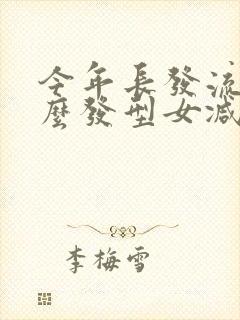 今年長發流
麼發型女減
李梅雪